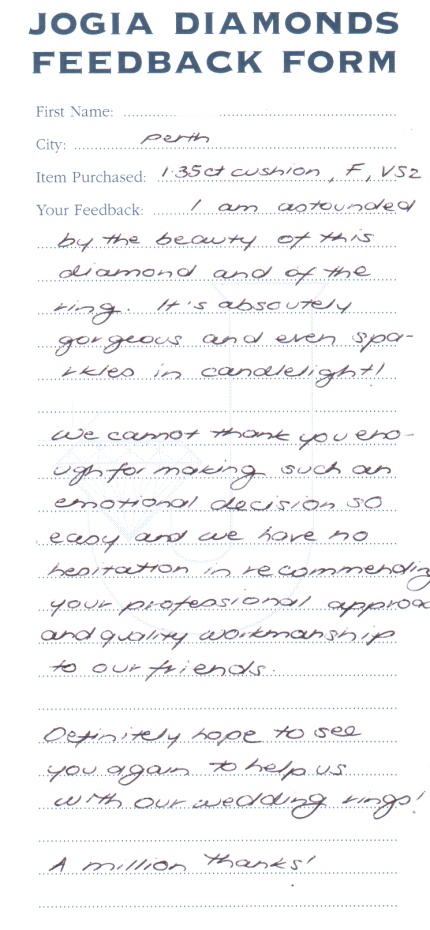 JOGIA DIAMONDS
FEEDBACK FORM
First Name:
City: Perth
Item Purchased: 1.35ct cushion, F, VS2
Your Feedback: I am astounded
by the beauty of this
diamond and of the
ring. It's absoutely
gorgeous and even spa-
rkles in candlelight!
We cannot thank you eno-
ugh for making such an
emotional decision so
easy and we have no
hesitation in recommending
your professional approac
and quality workmanship
to our friends.
Definitely hope to see
you again to help us
with our wedding rings!
A million thanks!